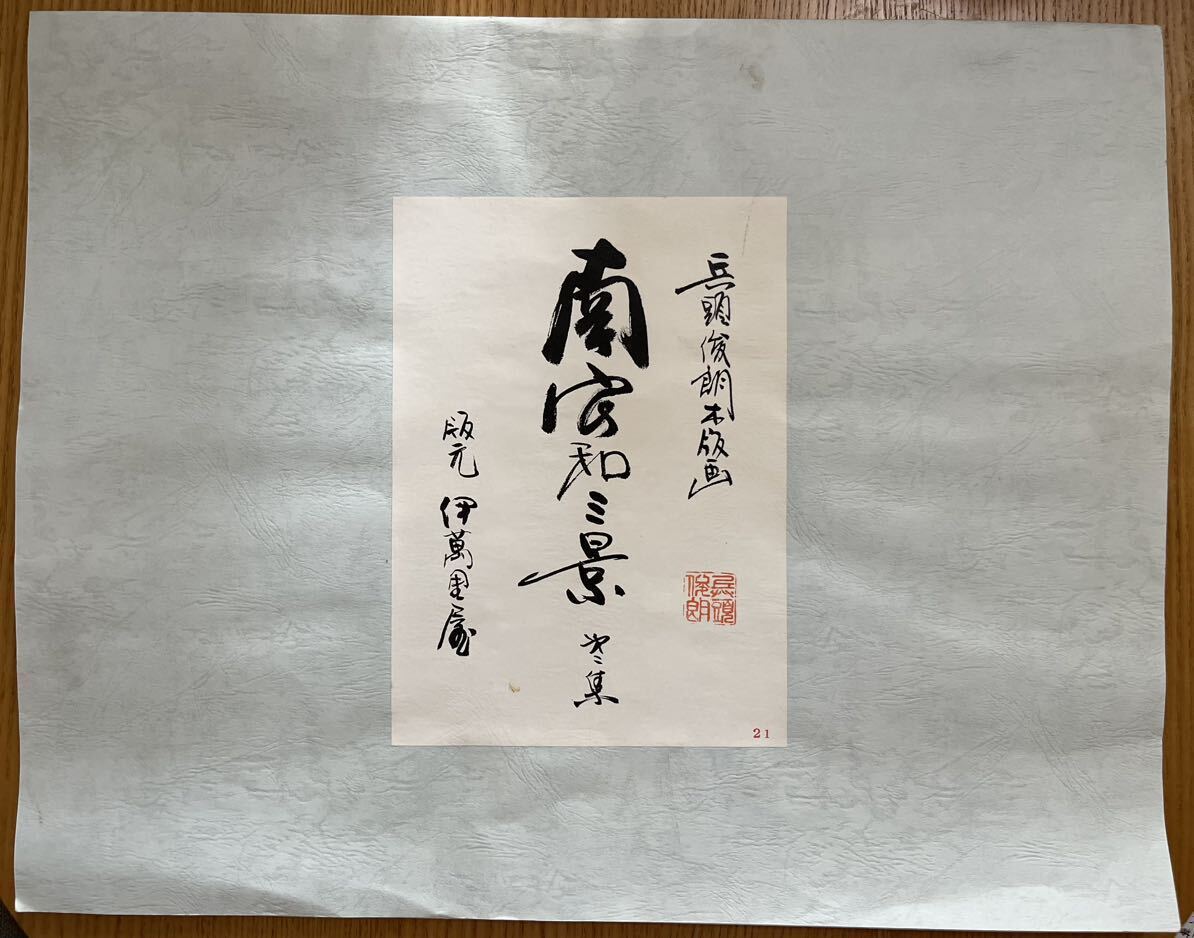 兵頭俊朗木版画
兵頭
俊朗
南宇和三景 第二集
版元 伊萬里屋
21